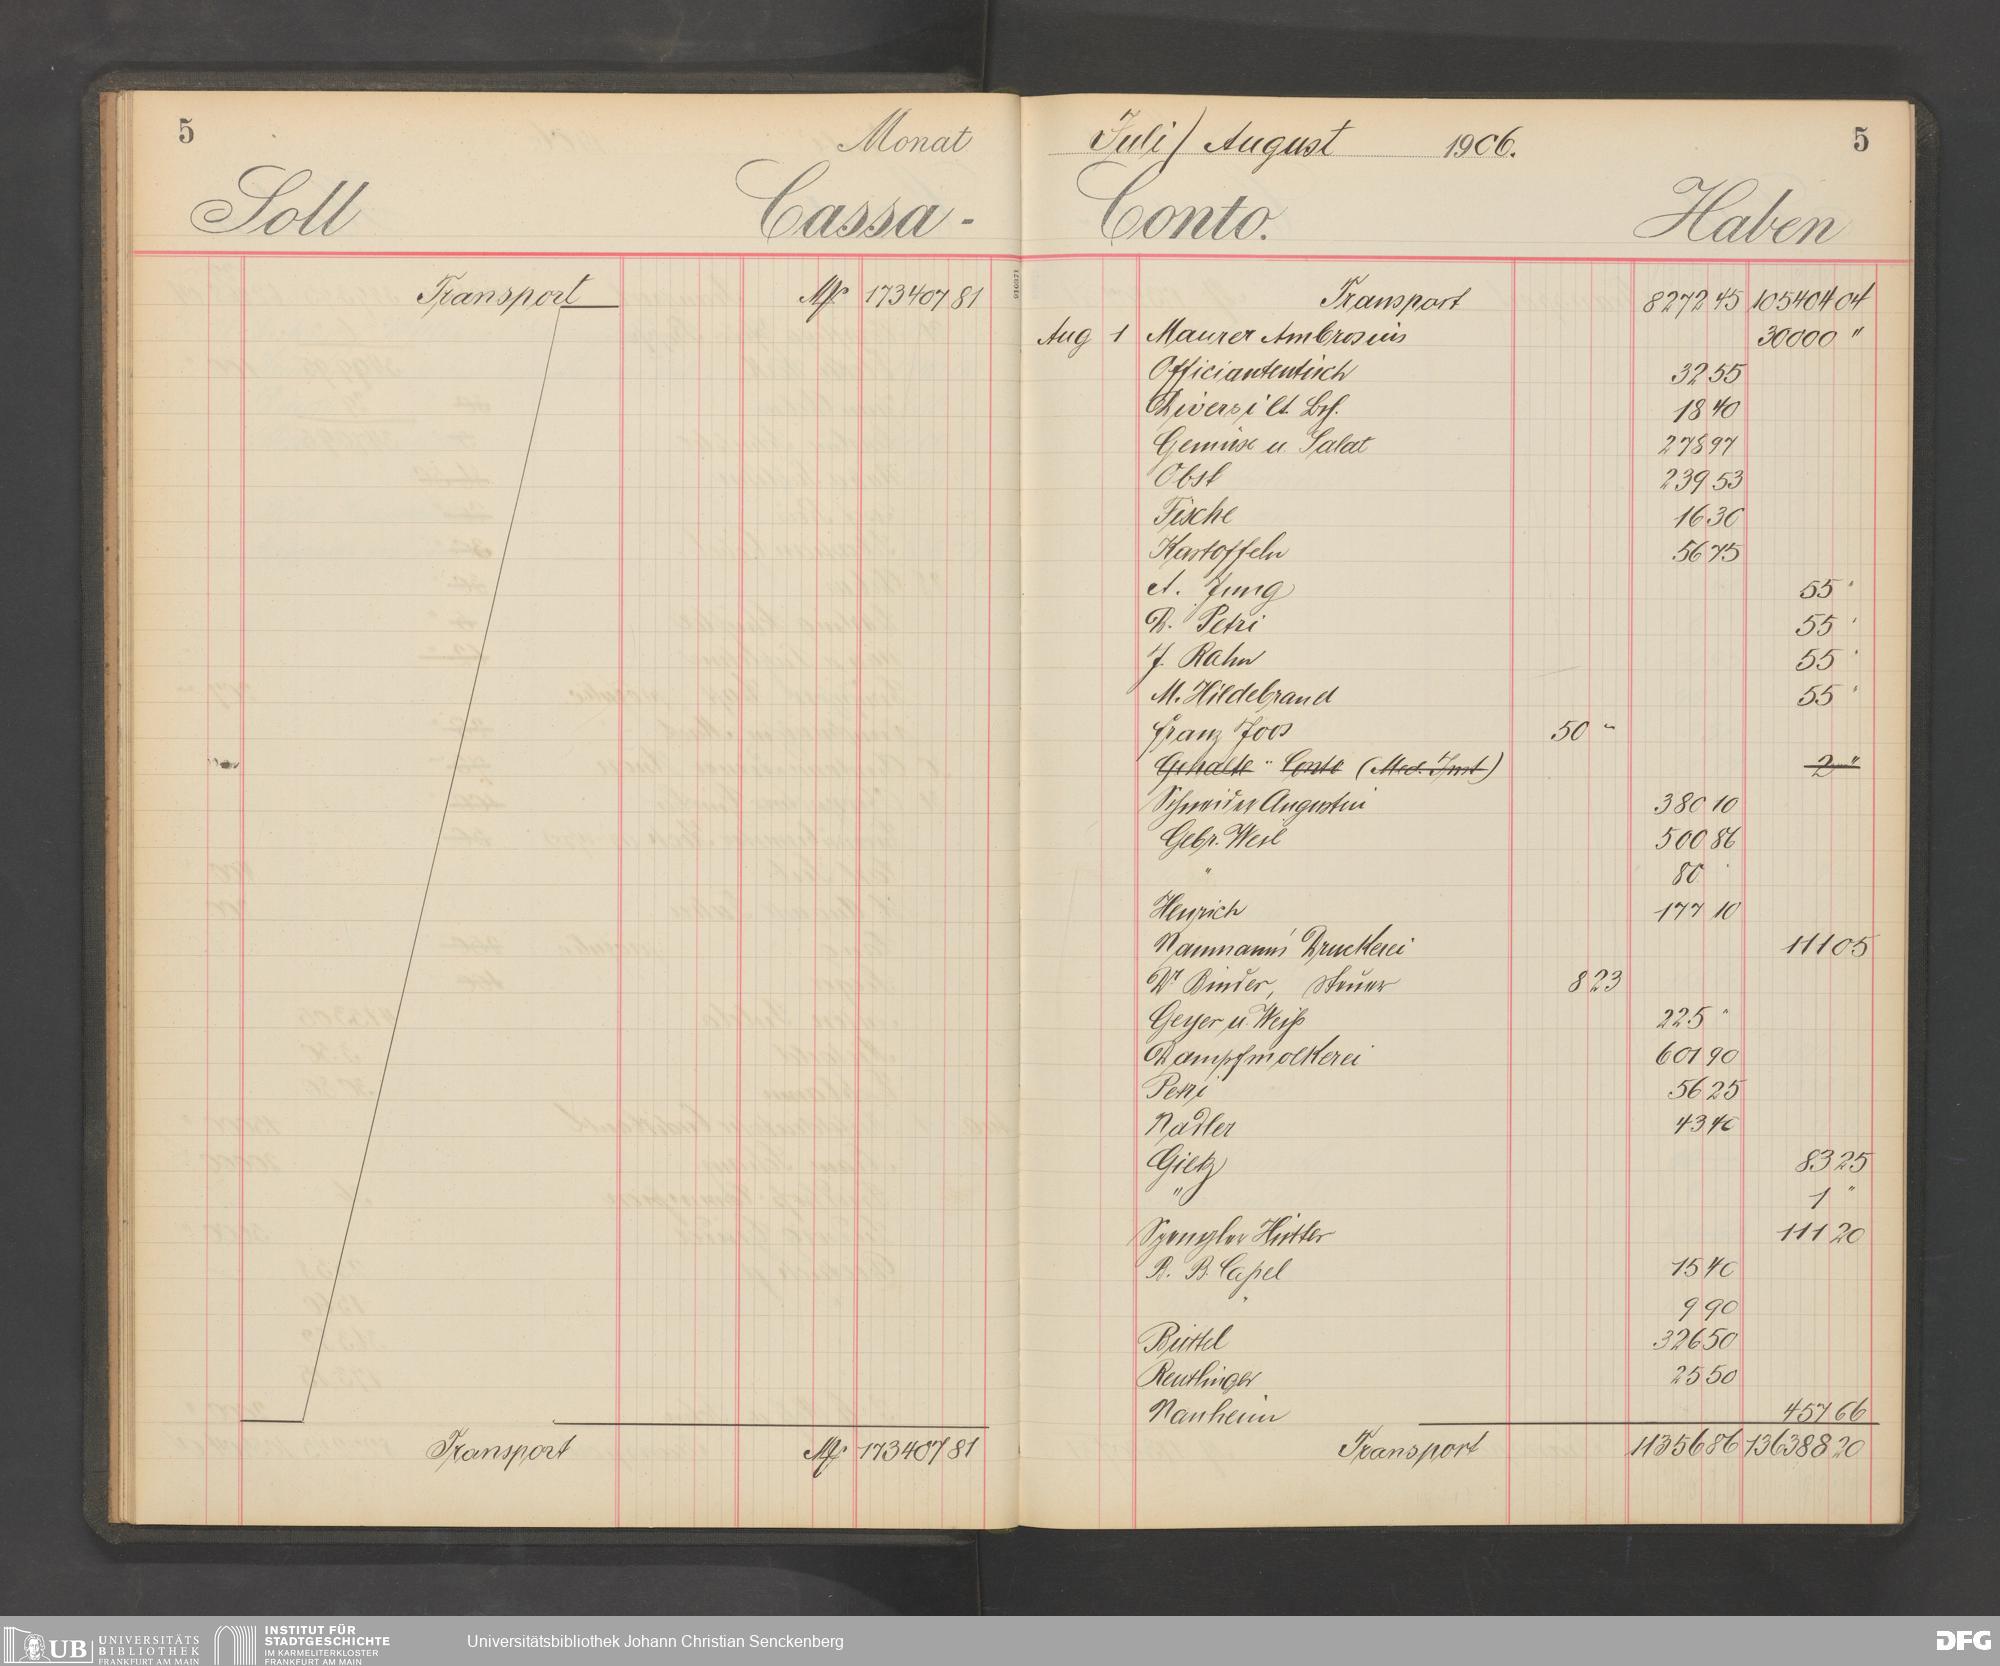 5
Monat
Soll Cassa-
Transport M 173407 81
Transport M 173407 81
Juli/ August 1906. 5
Conto. Haben
916071
Transport 8272 45 105404 04
Aug 1 Maurer Ambrosius 30000 "
Officiantentisch 32 55
Diversi lt. Bch. 18 40
Gemüse u. Salat 278 97
Obst 239 53
Fische 16 30
Kartoffeln 56 75
A. Jung 55 "
D. Petri 55 "
J. Rahn 55 "
M. Hildebrand 55 "
Franz Joos 50 "
Gehalte " Conto (Med. Inst) 2 "
Schneider Augustin 380 10
Gebr. Weil 500 86
" 80 "
Heyrich 177 10
Naumann's Druckerei 111 05
Dr Binder, Steuer 8 23
Geyer u. Weiß 225 "
Dampfmolkerei 601 90
Petri 56 25
Nadler 43 40
Gietz 83 25
" 1 "
Spengler Hütter 111 20
R. B. Capel 15 40
" 9 90
Bürtel 326 50
Reutlinger 25 50
Nanheim 457 66
Transport 11356 86 136388 20
UB UNIVERSITÄTS
BIBLIOTHEK
FRANKFURT AM MAIN
INSTITUT FÜR
STADTGESCHICHTE
IM KARMELITERKLOSTER
FRANKFURT AM MAIN
Universitätsbibliothek Johann Christian Senckenberg
DFG